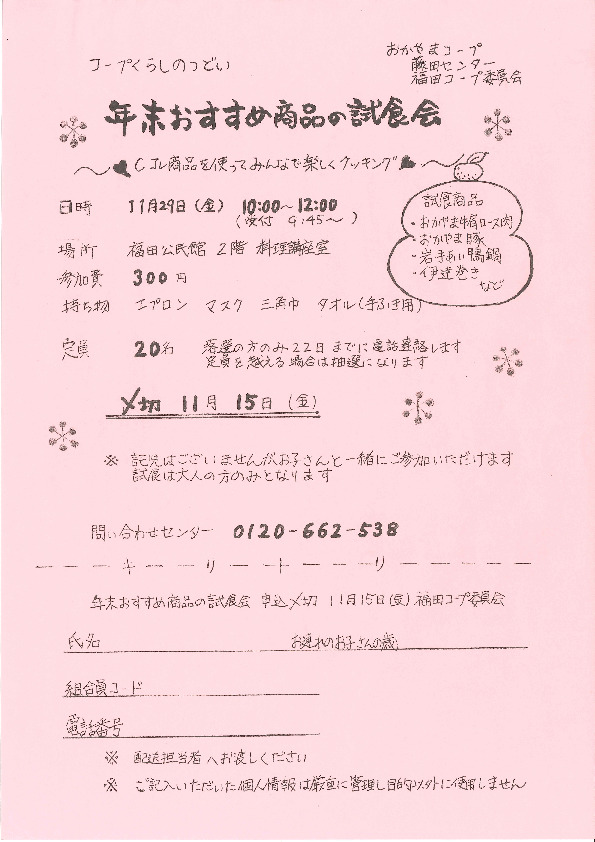 コープくらしのつどい
おかやまコープ
藤田センター
福田コープ委員会
年末おすすめ商品の試食会
くコレ商品を使ってみんなで楽しくクッキング
日時 11月29日(金) 10:00~12:00
(受付 9:45~)
場所 福田公民館 2階 料理講座室
参加費 300円
持ち物 エプロン マスク 三角巾 タオル(手ふき用)
試食商品
・おかやま牛肩ロース肉
・おかやま豚
・岩手あい鴨鍋
・伊達巻き
など
定員 20名 落選の方のみ22日までに電話連絡します
定員を越える場合は抽選になります
〆切 11月15日(金)
※ 託児はございませんがお子さんと一緒にご参加いただけます
試食は大人の方のみとなります
問い合わせセンター 0120-662-538
キリトリ
年末おすすめ商品の試食会 申込〆切 11月15日(金) 福田コープ委員会
氏名 お連れのお子さんの歳
組合員コード
電話番号
※ 配送担当者へお渡しください
※ ご記入いただいた個人情報は厳重に管理し目的以外に使用しません